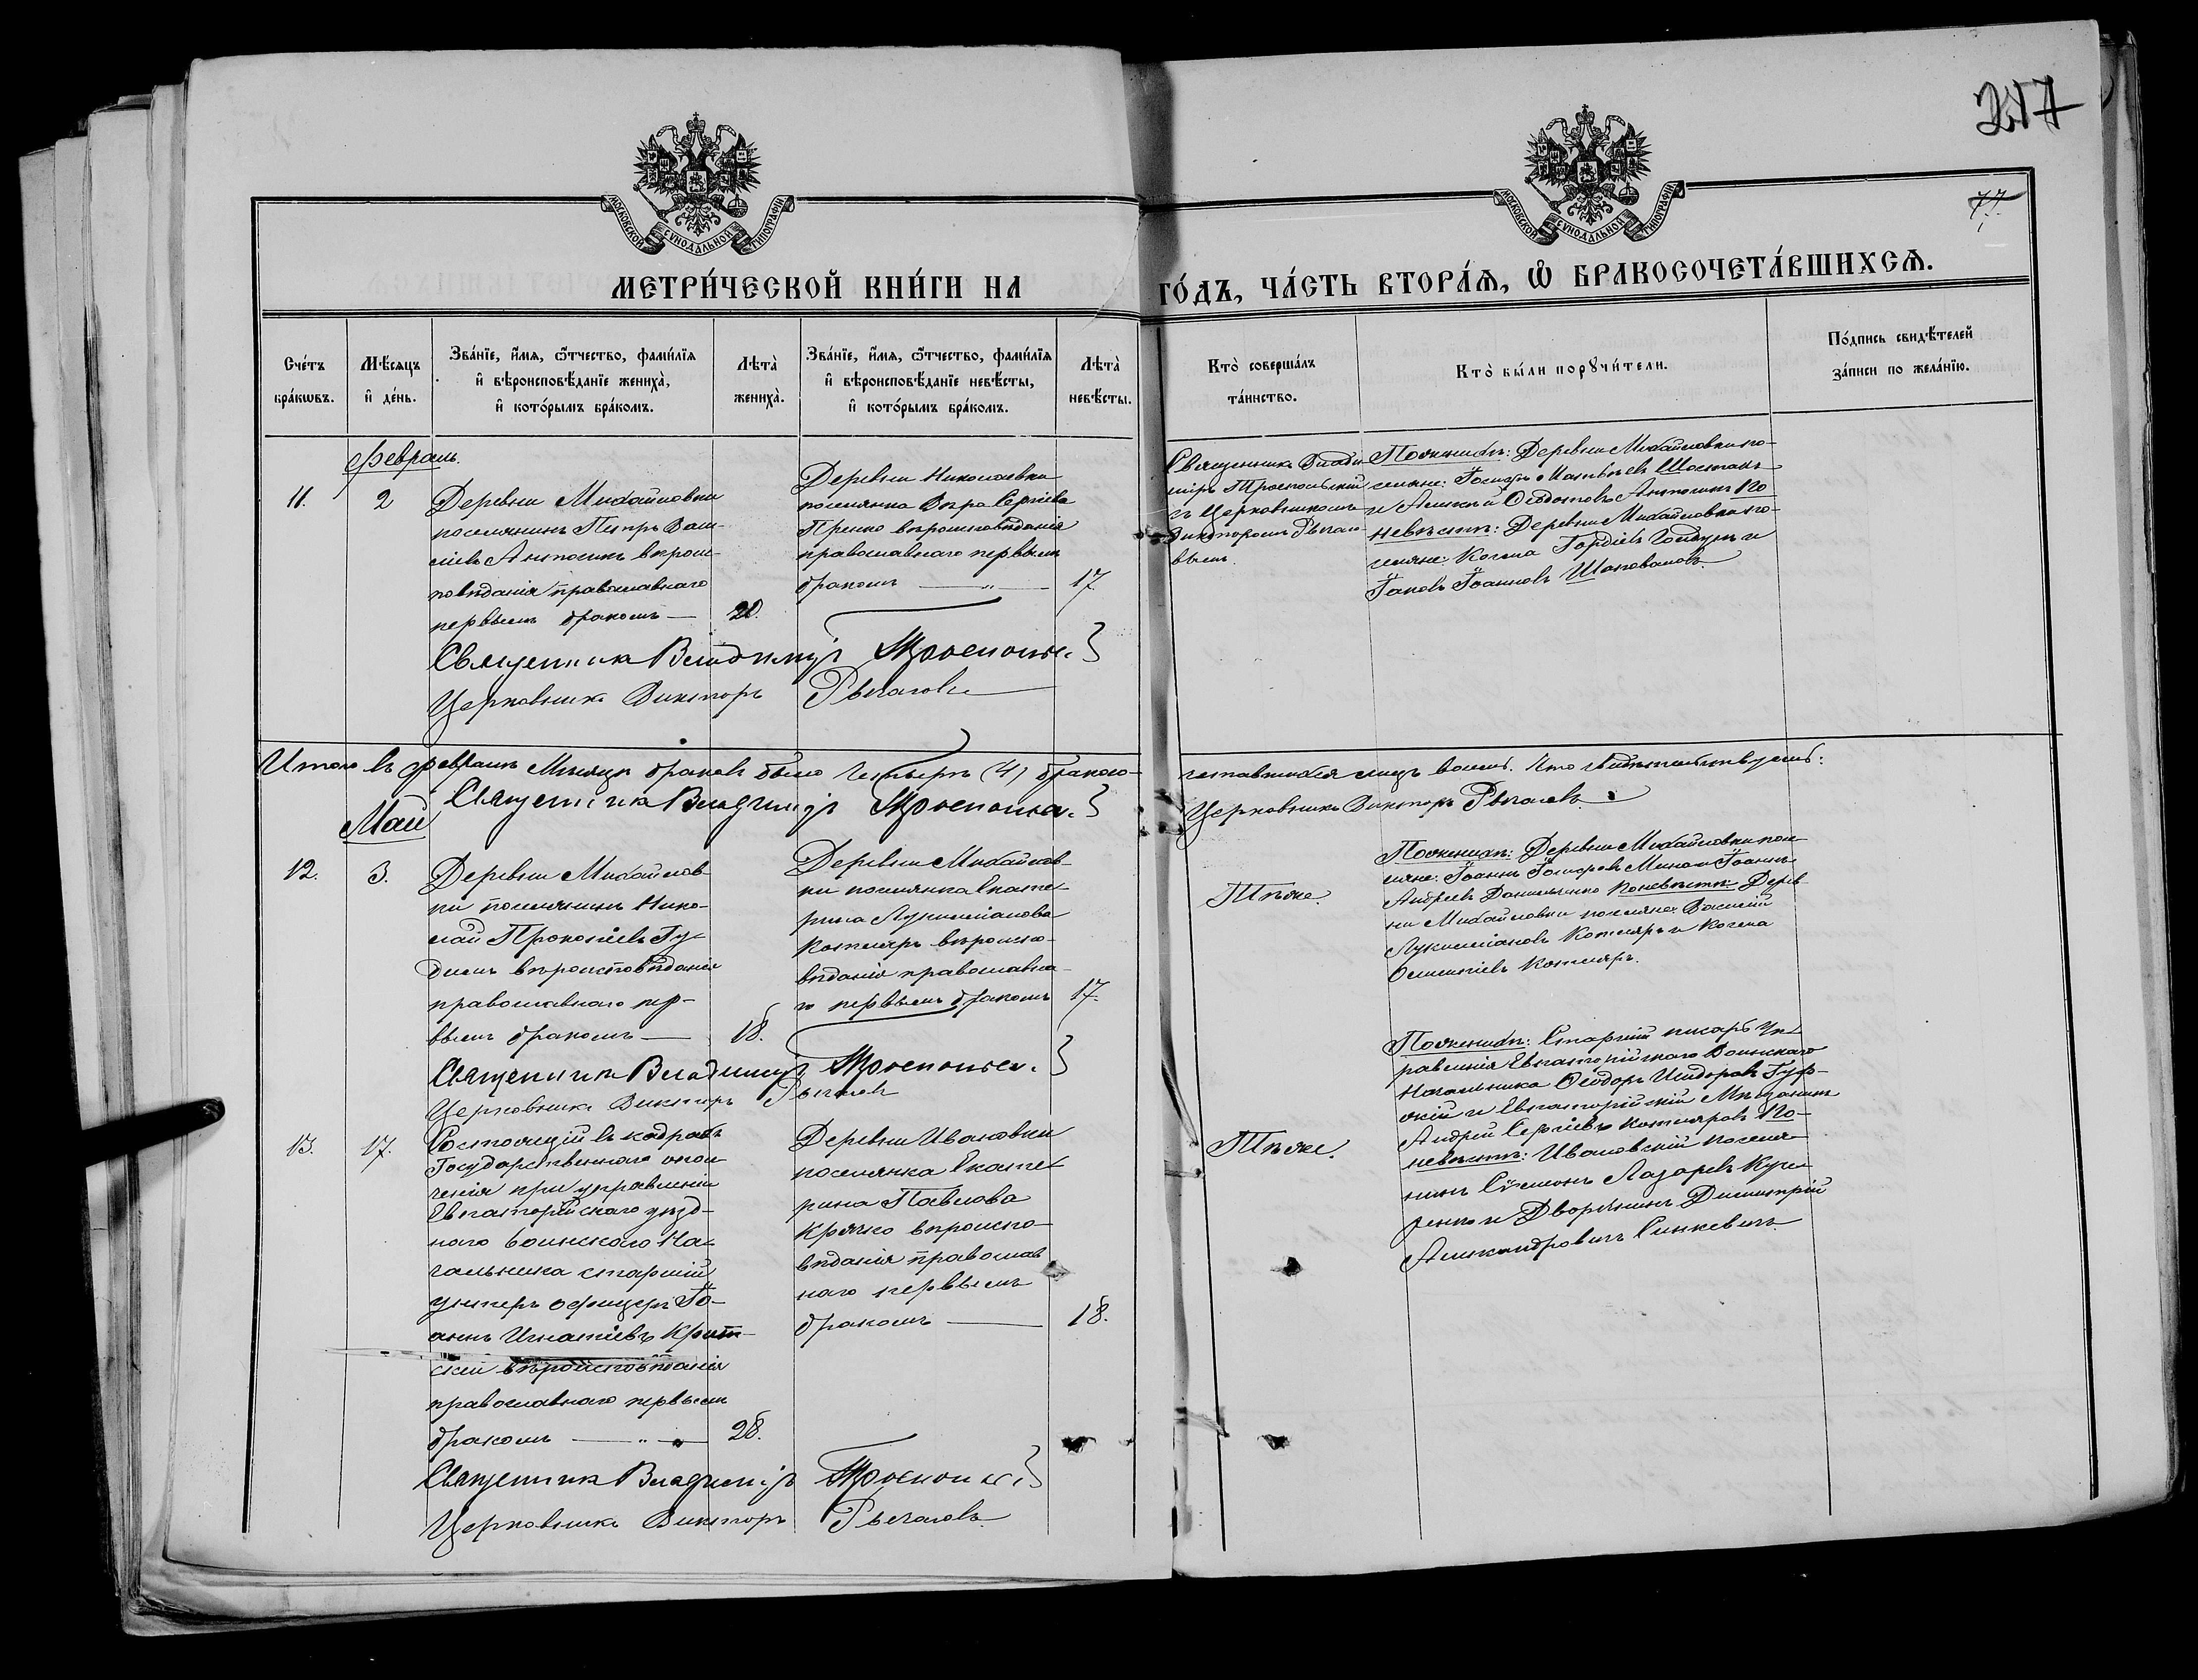 247
77.
МОСКОВСКОЙ СѴНОДАЛЬНОЙ ТИПОГРАФІИ
МОСКОВСКОЙ СѴНОДАЛЬНОЙ ТИПОГРАФІИ
МЕТРИ́ЧЕСКОЙ КНИ́ГИ НА
ГО́ДЪ, ЧА́СТЬ ВТОРА́Я, Ѡ҆ БРАКОСОЧЕТА́ВШИХСЯ.
Сче́тъ
бра́кѡвъ.
Мѣ́сяцъ
и҆ де́нь.
Зва́нїе, и҆́мя, ѻ҆́тчество, фами́лїя
и҆ вѣроисповѣ́данїе жениха̀,
и҆ кото́рымъ бра́комъ.
Лѣ́та̀
жениха̀.
Зва́нїе, и҆́мя, ѻ҆́тчество, фами́лїя
и҆ вѣроисповѣ́данїе невѣ́сты,
и҆ кото́рымъ бра́комъ.
Лѣ́та̀
невѣ́сты.
Кто̀ соверша́лъ
та́инство.
Кто̀ бы́ли порꙋчи́тели.
По́дпись свидѣ́телей
за́писи по жела́нїю.
Февраль.
11.
2
Деревни Михайловки
поселянинъ Петръ Васи-
ліевъ Антонинъ вѣроис-
повѣданія православнаго
первымъ бракомъ —
20.
Деревни Николаевки
поселянка Вѣра Сергіева
вѣроисповѣданія
православнаго первымъ
бракомъ — „ —
17.
Священникъ Влади-
міръ Троепольскій
съ Церковникомъ
Викторомъ Рыгало-
вымъ.
Поженихѣ: Деревни Михайловки по-
селяне: Іосифъ Матвѣевъ Шостакъ
и Алексѣй Ѳеодотовъ Антонинъ По
невѣстѣ: Деревни Михайловки по-
селяне: Косма Гордіевъ и
Іаковъ Іоанновъ Шаповаловъ.
Священникъ Владиміръ Троепольск.
Церковникъ Викторъ Рыгаловъ
Итого въ Февралѣ Мѣсяцѣ браковъ было четыре (4) бракосо-
четавшихся лицъ восемь. Что свидѣтельствуемъ:
Священникъ Владиміръ Троепольск.
Церковникъ Викторъ Рыгаловъ
Май
12.
3.
Деревни Михайлов-
ки поселянинъ Нико-
лай Прокопіевъ Гу-
димъ вѣроисповѣданія
православнаго пер-
вымъ бракомъ —
18.
Деревни Михайлов-
ки поселянка Екате-
рина Лукилліанова
Котляръ вѣроиспо-
вѣданія православна-
го первымъ бракомъ
17.
Тѣже.
Поженихѣ: Деревни Михайловки посе-
ляне: Іоаннъ и Іоаннъ
Андреевъ Даниленко По невѣстѣ: Дерев-
ни Михайловки поселяне: Василій
Лукилліановъ Котляръ и Косма
Котляръ.
Священникъ Владиміръ Троепольск.
Церковникъ Викторъ Рыгаловъ
13.
17.
Состоящій въ кадрахъ
Государственнаго опол-
ченія при управленіи
Евпаторійскаго уѣзд-
наго воинскаго На-
чальника старшій
унтеръ офицеръ Іо-
аннъ Игнатіевъ Крит-
скій вѣроисповѣданія
православнаго первымъ
бракомъ — „ —
28.
Деревни Ивановки
поселянка Екате-
рина Павлова
Крячко вѣроиспо-
вѣданія православ
наго первымъ
бракомъ —
18.
Тѣже.
Поженихѣ: Старшій писарь Уп-
равленія Евпаторійскаго Воинскаго
Начальника Ѳеодоръ Исидоровъ
и Евпаторійскій Мѣщанинъ
Андрей Сергіевъ Котляровъ По-
невѣстѣ: Ивановскій поселя-
нинъ Сѵмеонъ Лазаревъ
и Дворянинъ Димитрій
Александровичъ Синкевичъ.
Священникъ Владиміръ Троепольск.
Церковникъ Викторъ Рыгаловъ